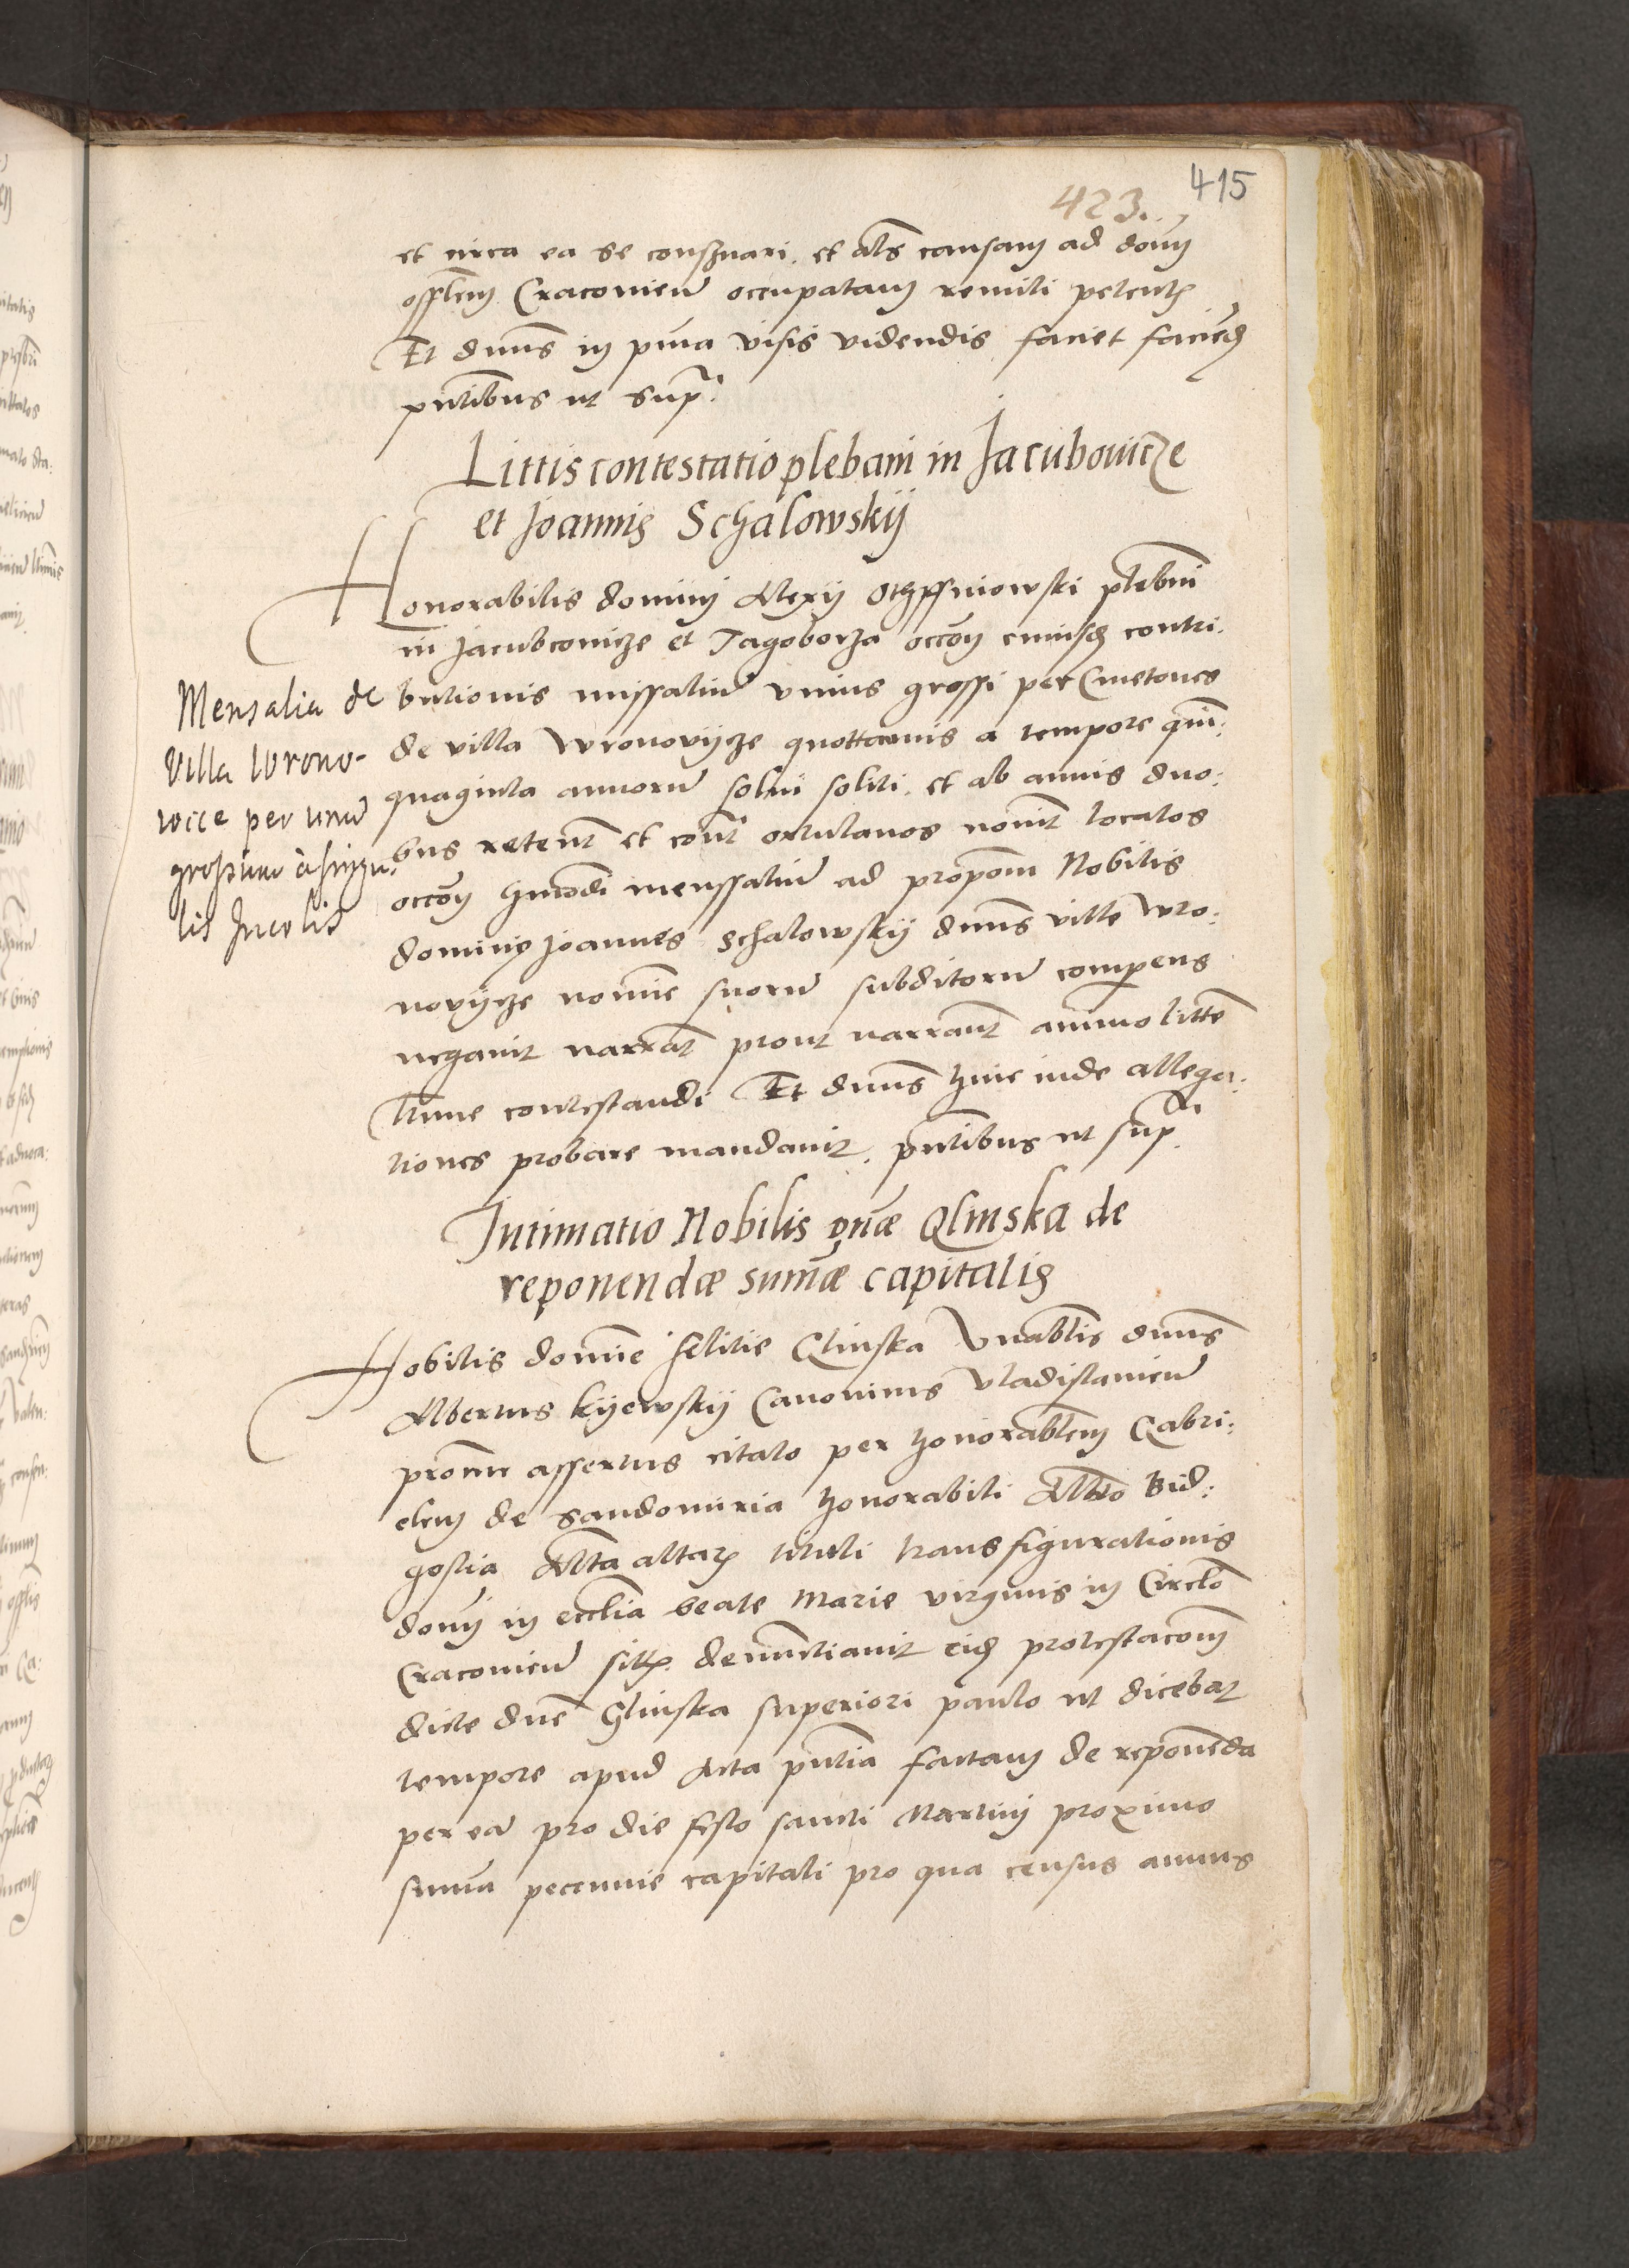 415
423.
et circa ea se conservari. et als causam ad donu
offlem Cracovien occupatam remitti petent
Et dnus in pma visis videndis faciet faciend
pntibus ut supr.
Littis contestatio plebani in Jacubovicze
et Joannis Schalowskÿ
Honorabilis dominj Alexÿ plebni
in Jacubcovicze et Tagoborza occoe contri.
butionis missaliu unius grossi per Cmetones
de villa Wronovÿcze quottannis a tempore quin:
quaginta annoru solvi soliti. et ab annis duo:
bus retent et cont ortulanos novit locatos
occoe hmodi menssaliu ad propoem Nobilis
dominus Joannes Schalowskÿ dnus ville Wro:
novÿcze nomine suoru subditoru comparens
negavit narrat prout narrant animo litte
hmoi contestandi Et dnus hinc inde allega:
tiones probare mandavit. pntibus ut supr.
Mensalia de
Villa Wrono-
wice per unu
grossum à singu.
lis Incolis
Intimatio Nobilis dnæ Glinska de
reponendæ sumæ capitalis
Nobilis domine felitie Glinska Vnablis dnus
Albertus kÿewskÿ Canonicus Vladislavien
procur assertus citato per honorablem Gabri:
elem de Sandomiria honorabili Albto Bid:
gostia Alta altaris tituli transfigurationis
domi in ecclia beate Marie virginis in Circlo
Cracovien siti denuntiavit eid protestacoem
dicte dne Glinska superiori paulo ut dicebat
tempore apud Acta pntia factam de reponenda
per ea pro die festo sancti Martini proximo
summa peccunie capitali pro qua census annus